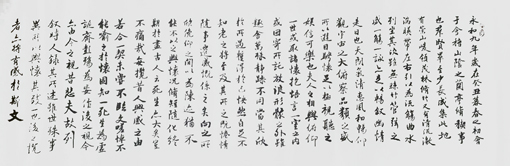 永和九年歲在癸丑暮春之初會
于會稽山陰之蘭亭脩稧事
也群賢畢至少長咸集此地
有崇山峻領茂林脩竹又有清流激
湍暎帶左右引以為流觴曲水
列坐其次雖無絲竹管弦之
盛一觴一詠亦足以暢敘幽情
是日也天朗氣清惠風和暢仰
觀宇宙之大俯察品類之盛
所以遊目騁懷足以極視聽之
娛信可樂也夫人之相與俯仰
一世或取諸懷抱悟言一室之內
或因寄所託放浪形骸之外雖
趣舍萬殊靜躁不同當其欣
於所遇蹔得於己快然自足不
知老之將至及其所之既惓情
隨事遷感慨係之矣向之所
欣俛仰之間以為陳迹猶不
能不以之興懷況脩短隨化終
期於盡古人云死生亦大矣豈
不痛哉每攬昔人興感之由
若合一契未嘗不臨文嗟悼不
能喻之於懷固知一死生為虛
誕齊彭殤為妄作後之視今
亦由今之視昔悲夫故列
敘時人錄其所述雖世殊事
異所以興懷其致一也後之攬
者亦將有感於斯文